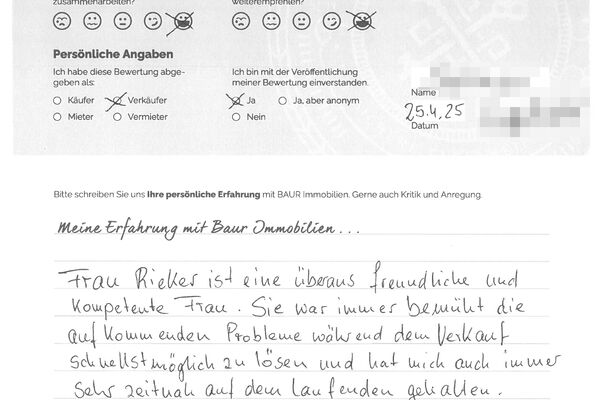 zusammenarbeiten?
weiterempfehlen?
Persönliche Angaben
Ich habe diese Bewertung abge-
geben als:
Käufer
Verkäufer
Mieter
Vermieter
Ich bin mit der Veröffentlichung
meiner Bewertung einverstanden.
Ja
Ja, aber anonym
Nein
Name
25.4.25
Datum
Bitte schreiben Sie uns Ihre persönliche Erfahrung mit BAUR Immobilien. Gerne auch Kritik und Anregung.
Meine Erfahrung mit Baur Immobilien...
Frau Rieker ist eine überaus freundliche und
kompetente Frau. Sie war immer bemüht die
aufkommenden Probleme während dem Verkauf
schnellstmöglich zu lösen und hat mich auch immer
sehr zeitnah auf dem laufenden gehalten.